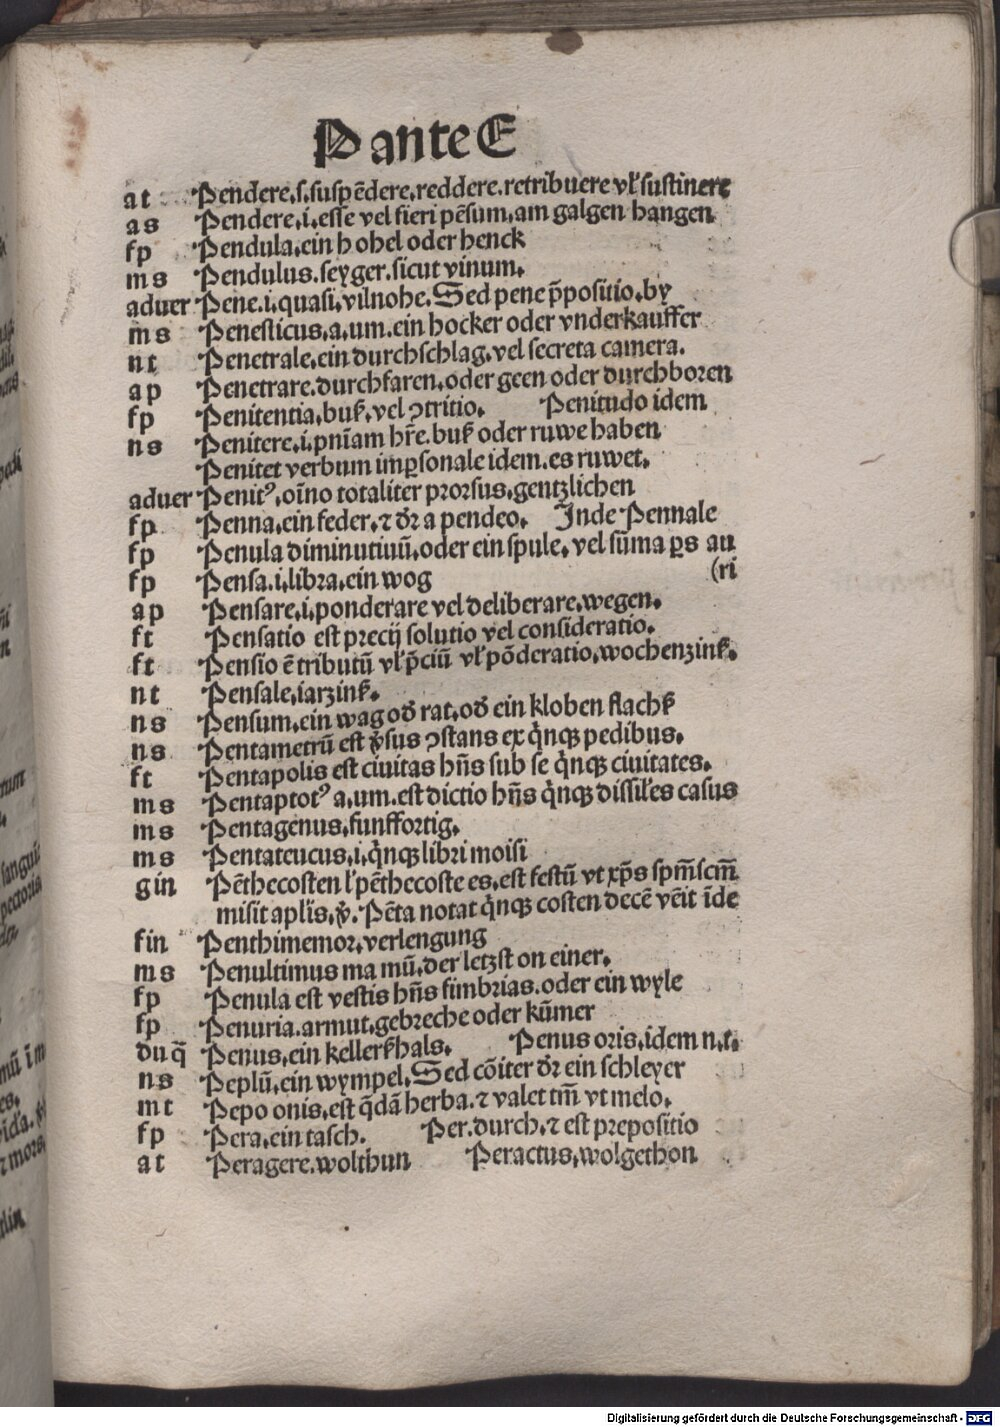 P ante E
at Pendere.s.suspēdere.reddere.retribuere vl̕ sustinere
as Pendere.i.esse vel fieri pēsum.am galgen hangen
fp Pendula.ein hohel oder henck
ms Pendulus.seyger.sicut vinum.
aduer Pene.i.quasi.vilnohe. Sed pene p̄positio.by
ms Penesticus.a.um.ein hocker oder vnderkauffer
nt Penetrale.ein durchschlag.vel secreta camera.
ap Penetrare.durchfaren.oder geen oder durchboren
fp Penitentia.buß.vel ↄtritio. Penitudo idem
ns Penitere.i.pnīam hr̄e.buß oder ruwe haben
Penitet verbum imꝑsonale idem.es ruwet.
aduer Penitꝰ.oīno totaliter prorsus.gentzlichen
fp Penna.ein feder.⁊ dr̄ a pendeo. Inde Pennale
fp Penula diminutiuū.oder ein spule.vel sūma ꝑs au
fp Pensa.i.libra.ein wog (ri
ap Pensare.i.ponderare vel deliberare.wegen.
ft Pensatio est precij solutio vel consideratio.
ft Pensio ē tributū vl̕ p̄ciū vl̕ pōderatio.wochenzinß.
nt Pensale.iarzinß.
ns Pensum.ein wag od̕ rat.od̕ ein kloben flachß
ns Pentametrū est v̕sus ↄstans ex q̇nqꝫ pedibus.
ft Pentapolis est ciuitas hn̄s sub se q̇nqꝫ ciuitates.
ms Pentaptotꝰ a.um.est dictio hn̄s q̇nqꝫ dissil̕es casus
ms Pentagenus.funffortig.
ms Pentateucus.i.q̇nqꝫ libri moisi
gin Pēthecosten l̕ pēthecoste es.est festū vt xp̄s spm̄ scm̄
misit apl̕is.v̕. Pēta notat q̇nqꝫ costen decē vēit īde
fin Penthimemor.verlengung
ms Penultimus ma mū.der letzst on einer.
fp Penula est vestis hn̄s fimbrias.oder ein wyle
fp Penuria.armut.gebreche oder kūmer
du q̄ Penus.ein kellerßhals. Penus oris.idem n.t.
ns Peplū.ein wympel. Sed cōiter dr̄ ein schleyer
mt Pepo onis.est q̄dā herba.⁊ valet tm̄ vt melo.
fp Pera.ein tasch. Per.durch.⁊ est prepositio
at Peragere.wolthun Peractus.wolgethon
Digitalisierung gefördert durch die Deutsche Forschungsgemeinschaft - DFG